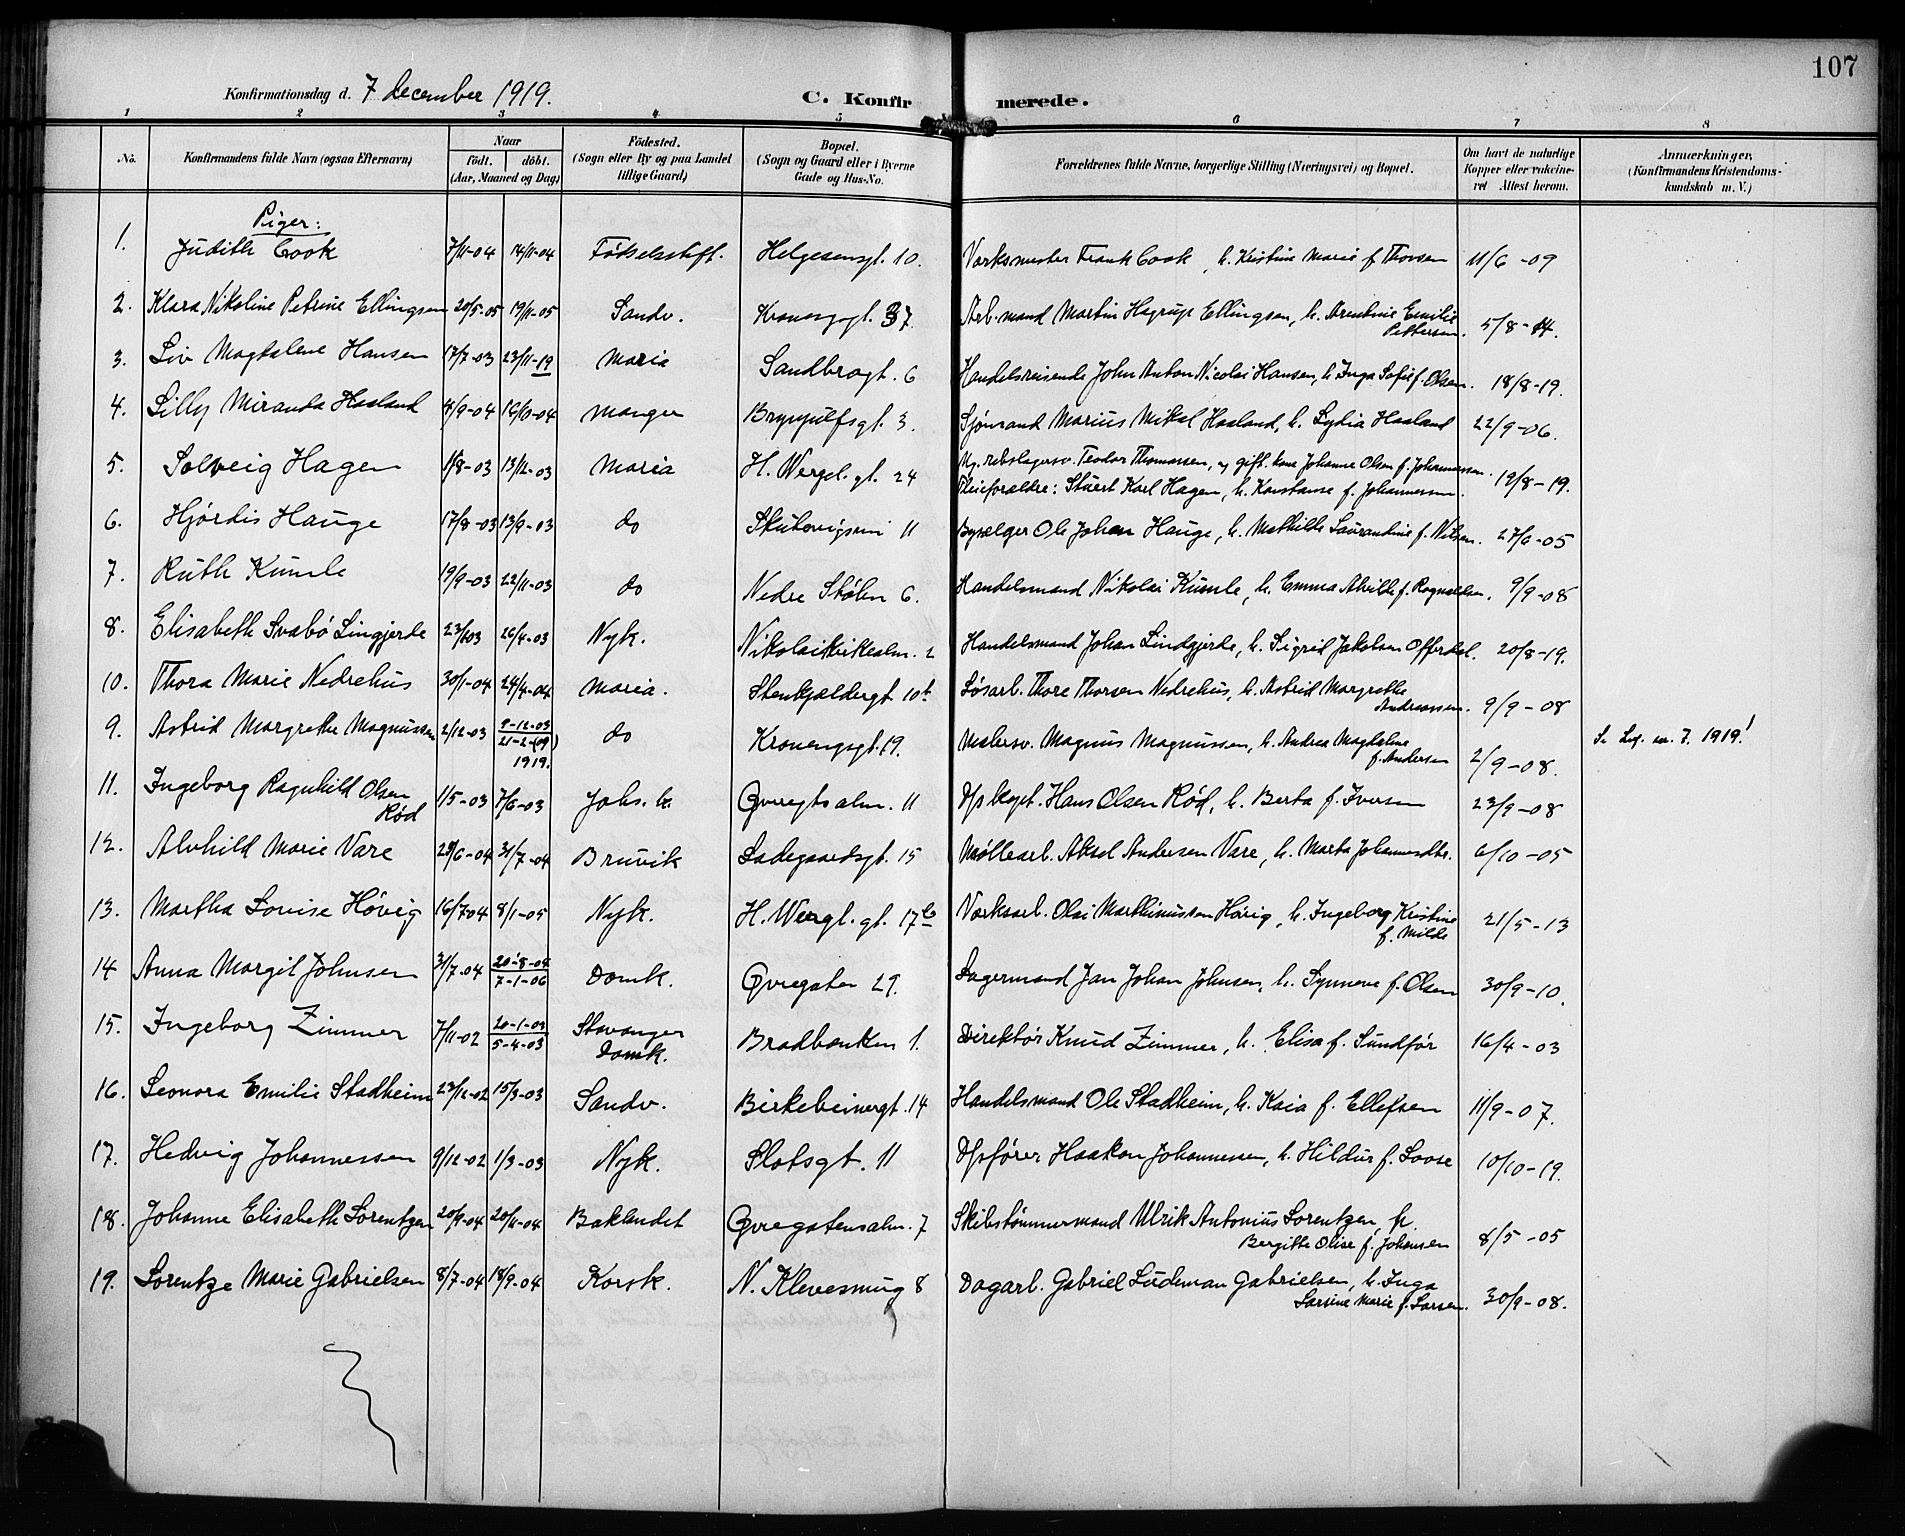 107
Konfirmationsdag d. 7 december 1919.
C. Konfirmerede.
1 2 3 4 5 6 7 8
No. Konfirmandens fulde Navn (ogsaa Efternavn) Naar født. døbt. (Aar, Maaned og Dag) Fødested. (Sogn eller By og paa Landet tillige Gaard) Bopæl. (Sogn og Gaard eller i Byerne Gade og Hus-No. Forældrenes fulde Navne, borgerlige Stilling (Næringsvei) og Bopæl. Om havt de naturlige Kopper eller vakcineret Attest herom. Anmærkninger, (Konfirmandens Kristendomskundskab m. V.)
Piger:
1. Judith Cook 7/11-04 14/11-04 Fødselsstift. Helgesensgt. 10. Værksmester Frank Cook, h. Kristine Marie f. Thorsen 11/6-09
2. Klara Nikoline Petrine Ellingsen 20/5-05 19/11-05 Sandv. Kroneng.gt. 37. Arb.mand Martin Hagrup Ellingsen, h. Arentine Emilie Pettersen. 5/8-14.
3. Liv Magdalene Hansen 17/7-03 23/11-19 Maria Sandbrogt. 6 Handelsreisende John Anton Nicolai Hansen, h. Inga Sofie f. Olsen. 18/8-19.
4. Lilly Miranda Haaland 4/9-04 16/10-04 Manger Brynjulfsgt. 3. Sjømand Marius Mikal Haaland, h. Lydia Haaland 22/9-06.
5. Solveig Hagen 1/8-03 13/12-03 Maria H. Wergel. gt. 24 Ug. rebslagersv. Teodor Thomassen, og gift. kone Johanne Olsen f. Johannessen.
Pleieforældre: Stuert Karl Hagen, h. Konstanse f. Johannessen. 12/8-19.
6. Hjørdis Hauge 17/8-03 13/9-03 do Skutevigsvei 11 Bysælger Ole Johan Hauge, h. Mathilde Laurandine f. Nilsen. 27/6-05
7. Ruth Kumle 19/9-03 22/11-03 do Nedre Stølen 6. Handelsmand Nikolai Kumle, h. Emma Alvilde f. Rognaldsen. 9/9-08
8. Elisabeth Svabø Lingjerde 26/4-03 Nyk. Nikolaikirkealm. 2 Handelsmand Johan Lindgjerde, h. Sigrid Jakobsen Offerdal. 20/8-19.
10. Thora Marie Nedrehus 30/1-04 24/4-04 Maria. Stenkjældergt. 10b Løsarb. Thore Thorsen Nedrehus, h. Astrid Margrethe Andreassen. 9/9-08
9. Astrid Margrethe Magnussen 2/12-03 9-12-03 21-2-(09) 1919. do Kronengsgt. 19. Malersv. Magnus Magnussen, h. Andrea Magdalene f. Andersen 2/9-08. Se 7. 1919!
11. Ingeborg Ragnhild Olsen Rød 1/5-03 7/6-03 Johs. k. Øvregtsalm. 11 Dpskapt. Hans Olsen Rød, h. Berta f. Iversen 23/9-08
12. Alvhild Marie Vare 28/6-04 31/7-04 Bruvik Ladegaardsgt. 15 Møllearb. Aksel Andersen Vare, h. Marta Johannesdtr. 6/10-05
13. Martha Lovise Høvig 16/7-04 8/1-05 Nyk. H. Wergl. gt. 17b Værksarb. Olai Marthinussen Høvig, h. Ingeborg Kristine f. Milde 21/5-13
14 Anna Margit Johnsen 31/7-04 20-8-04 7-1-06 Domk. Øvregaten 29. Lagermand Jan Johan Johnsen, h. Synnøve f. Olsen 30/9-10.
15. Ingeborg Zimmer 7/11-02 20-1-03 5-4-03 Stavanger Domk. Bradbænken 1. Direktør Knud Zimmer, h. Elisa f. Sundfør 16/4-03
16. Leonora Emilie Stadheim 23/12-02 15/3-03 Sandv. Birkebeinergt. 14 Handelsmand Ole Stadheim, h. Kaia f. Ellefsen 11/9-07.
17. Hedvig Johannessen 9/12-02 1/3-03 Nyk. Slotsgt. 11 Dpsfører Haakon Johannessen, h. Hildur f. Loose 10/10-19.
18. Johanne Elisabeth Lorentzen 20/9-04 20/11-04 Baklandet Øvregatensalm. 7 Skibstømmermand Ulrik Antonius Lorentzen, h. Bergitte Olise f. Johansen 8/5-05
19. Lorentze Marie Gabrielsen 8/7-04 18/9-04 Korsk. N. Klevesmug 8 Dagarb. Gabriel Ludeman Gabrielsen, h. Inga Larsine Marie f. Larsen. 30/9-08.